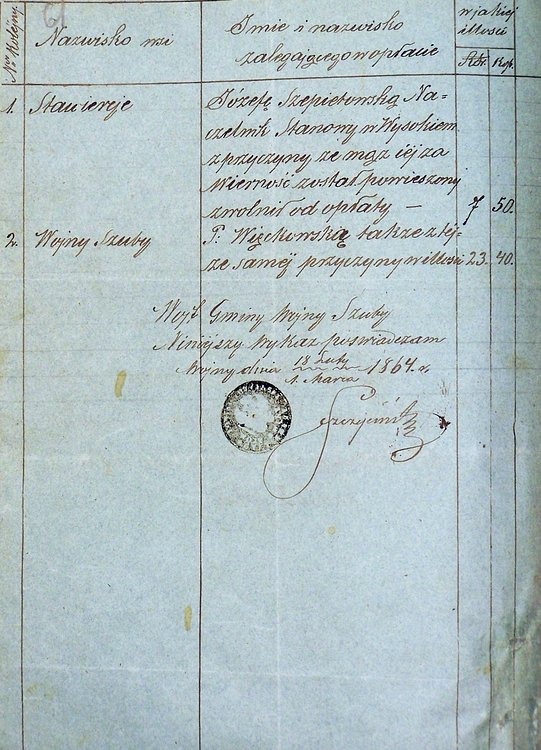 Nro Kolejny
Nazwisko wsi
Imie i nazwisko
zalegającego w opłacie
w jakiej
ilości
Rúb. Kop.
1. Stawiereje
Józefę Szepietowską Na=
czelnik Stanowy w Wysokiem
z przyczyny ze mąz iéj za
wierność został powieszony
zwolnił od opłaty — 7 50.
2. Wojny Szuby
P. Więckowską takze z téj=
ze saméj przyczyny w ilości 23. 40.
Wójt Gminy Wojny Szuby
Niniéjszy Wykaz poswiadczam
Wojny dnia 18 Luty / 1. Marca 1864. r.